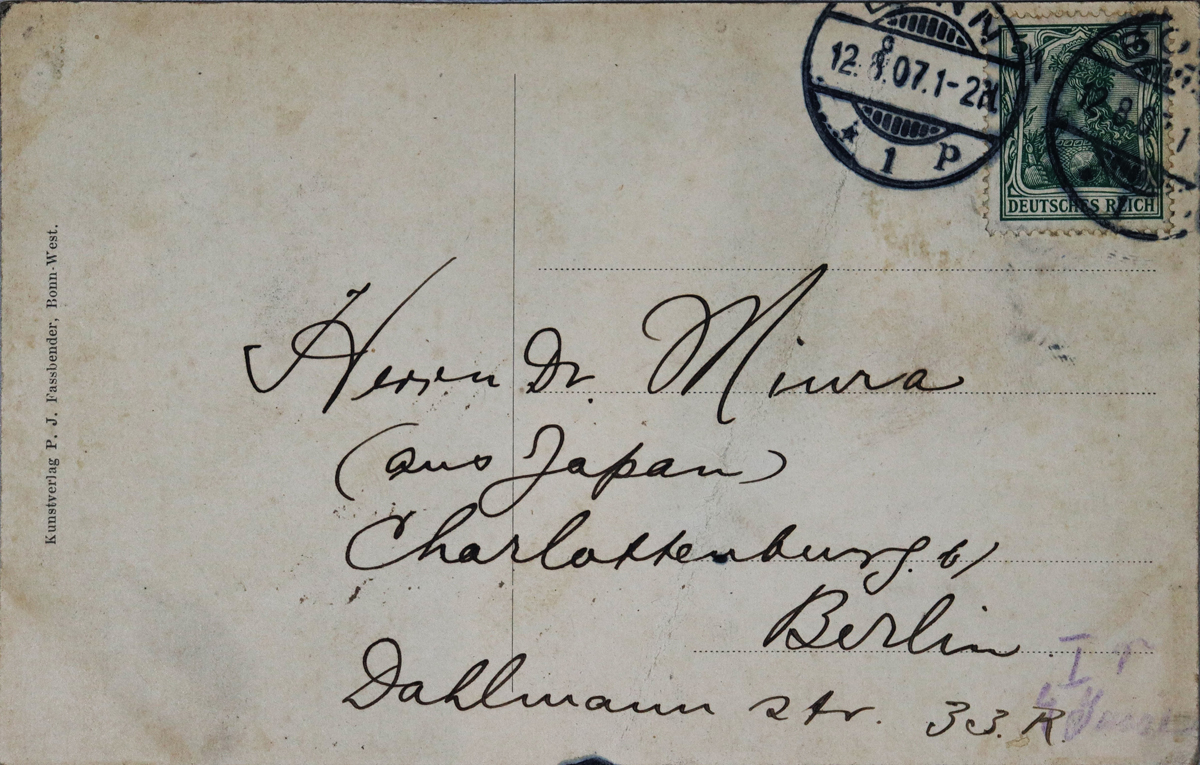 BONN
12.8.07.1-2N
* 1 p
DEUTSCHES REICH
Herrn Dr. Miura
(aus Japan)
Charlottenburg b/
Berlin
Dahlmann str. 33.R.
Kunstverlag P. J. Fassbender, Bonn-West.